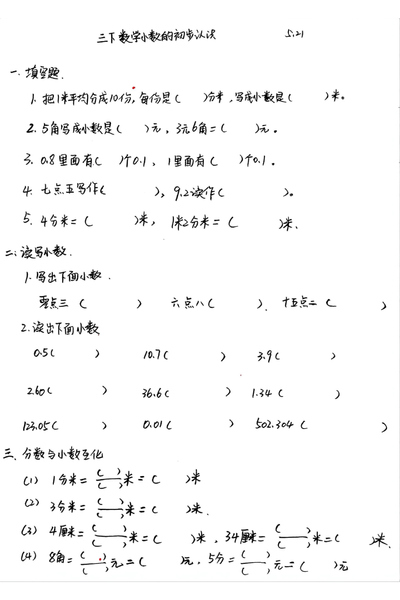 三下数学小数的初步认识 5.21
一.填空题.
1.把1米平均分成10份,每份是( )分米,写成小数是( )米。
2.5角写成小数是( )元,3元6角=( )元。
3.0.8里面有( )个0.1,1里面有( )个0.1。
4.七点五写作( ),9.2读作( )。
5.4分米=( )米,1米2分米=( )米.
二:读写小数.
1.写出下面小数.
零点三( ) 六点八( ). 十五点二( )
2.读出下面小数
0.5( ) 10.7( ) 3.9( )
2.60( ) 36.6( ) 1.34( )
123.05( ) 0.01( ) 502.304( )
三.分数与小数互化
(1) 1分米=( )/( )米=( )米
(2) 3分米=( )/( )米=( )米.
(3) 4厘米=( )/( )米=( )米,34厘米=( )/( )米=( )米.
(4) 8角=( )/( )元=( )元,5分=( )/( )元=( )元